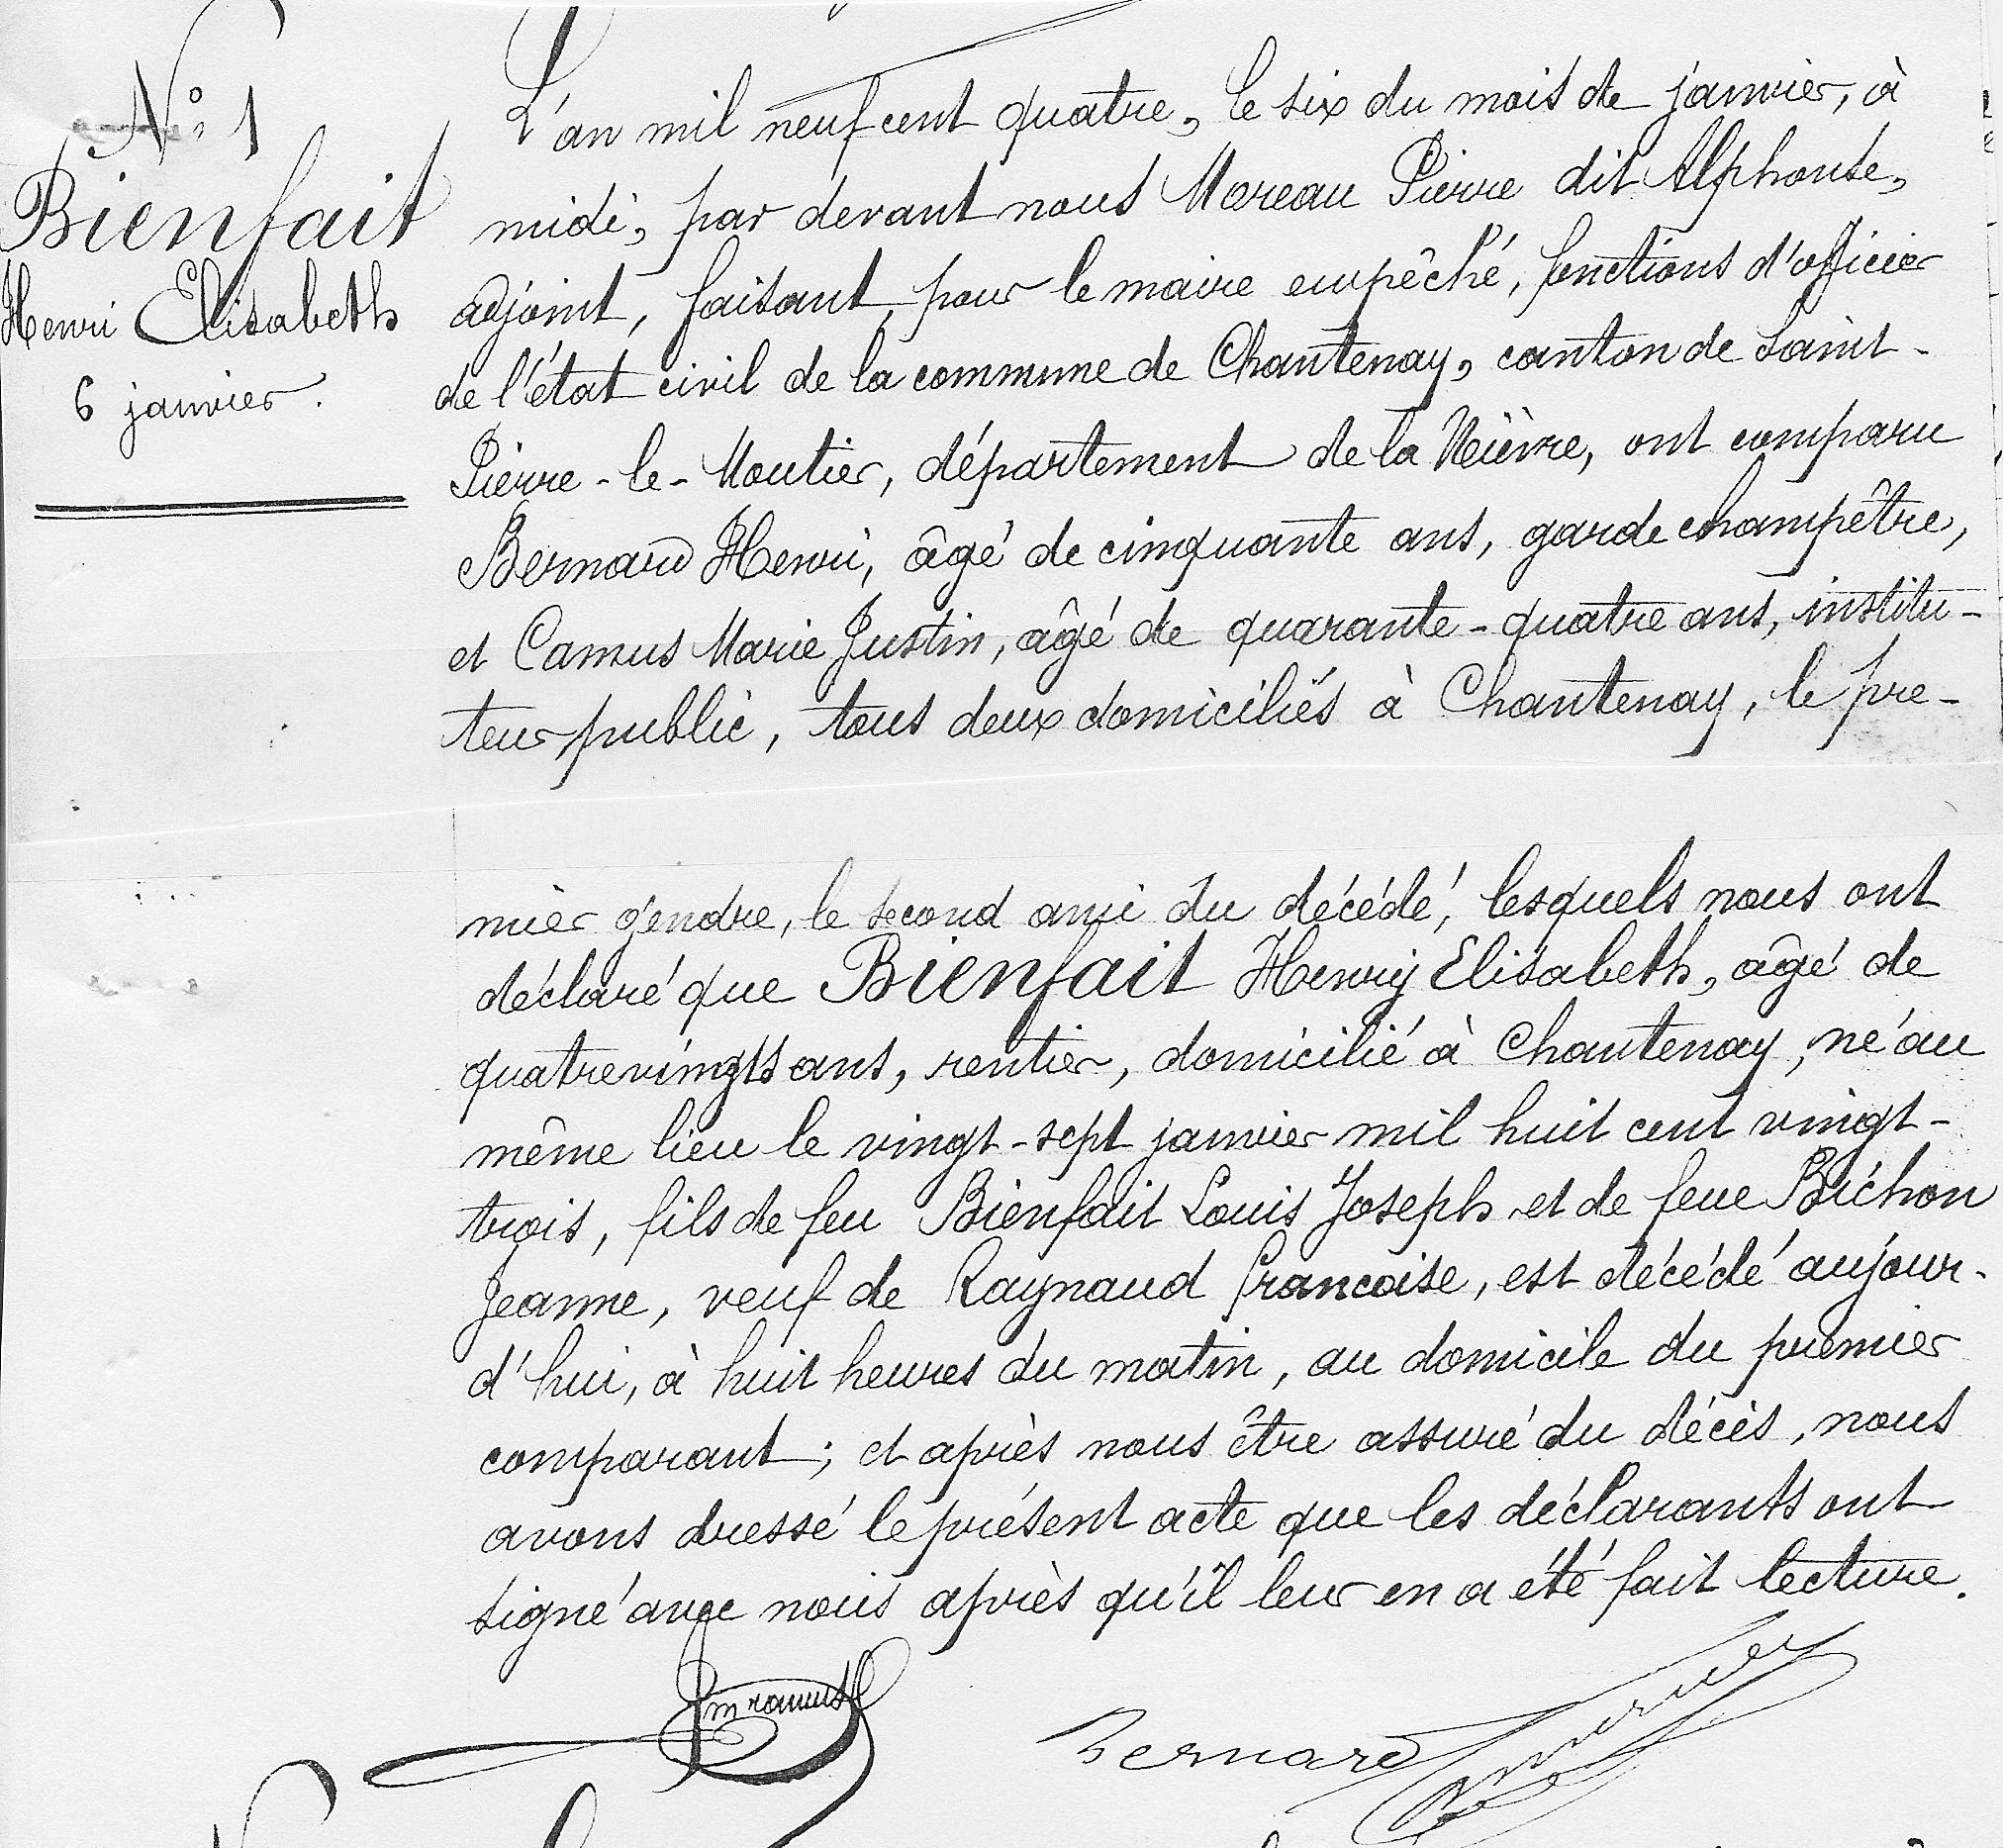 N° 1
Bienfait
Henri Elisabeth
6 janvier.
L'an mil neuf cent quatre, le six du mois de janvier, à
midi, par devant nous Moreau Pierre dit Alphonse,
adjoint, faisant, pour le maire empêché, fonctions d'officier
de l'état civil de la commune de Chantenay, canton de Saint-
Pierre-le-Moutier, département de la Nièvre, ont comparu
Bernard Henri, âgé de cinquante ans, garde champêtre,
et Camus Marie Justin, âgé de quarante-quatre ans, institu-
teur public, tous deux domiciliés à Chantenay, le pre-
mier gendre, le second ami du décédé, lesquels nous ont
déclaré que Bienfait Henry Elisabeth, âgé de
quatrevingts ans, rentier, domicilié à Chantenay, né au
même lieu le vingt-sept janvier mil huit cent vingt-
trois, fils de feu Bienfait Louis Joseph et de feue Bichon
Jeanne, veuf de Raynaud francoise, est décédé aujour-
d'hui, à huit heures du matin, au domicile du premier
comparant; et après nous être assuré du décès, nous
avons dressé le présent acte que les déclarants ont
signé avec nous après qu'il leur en a été fait lecture.
Bernard